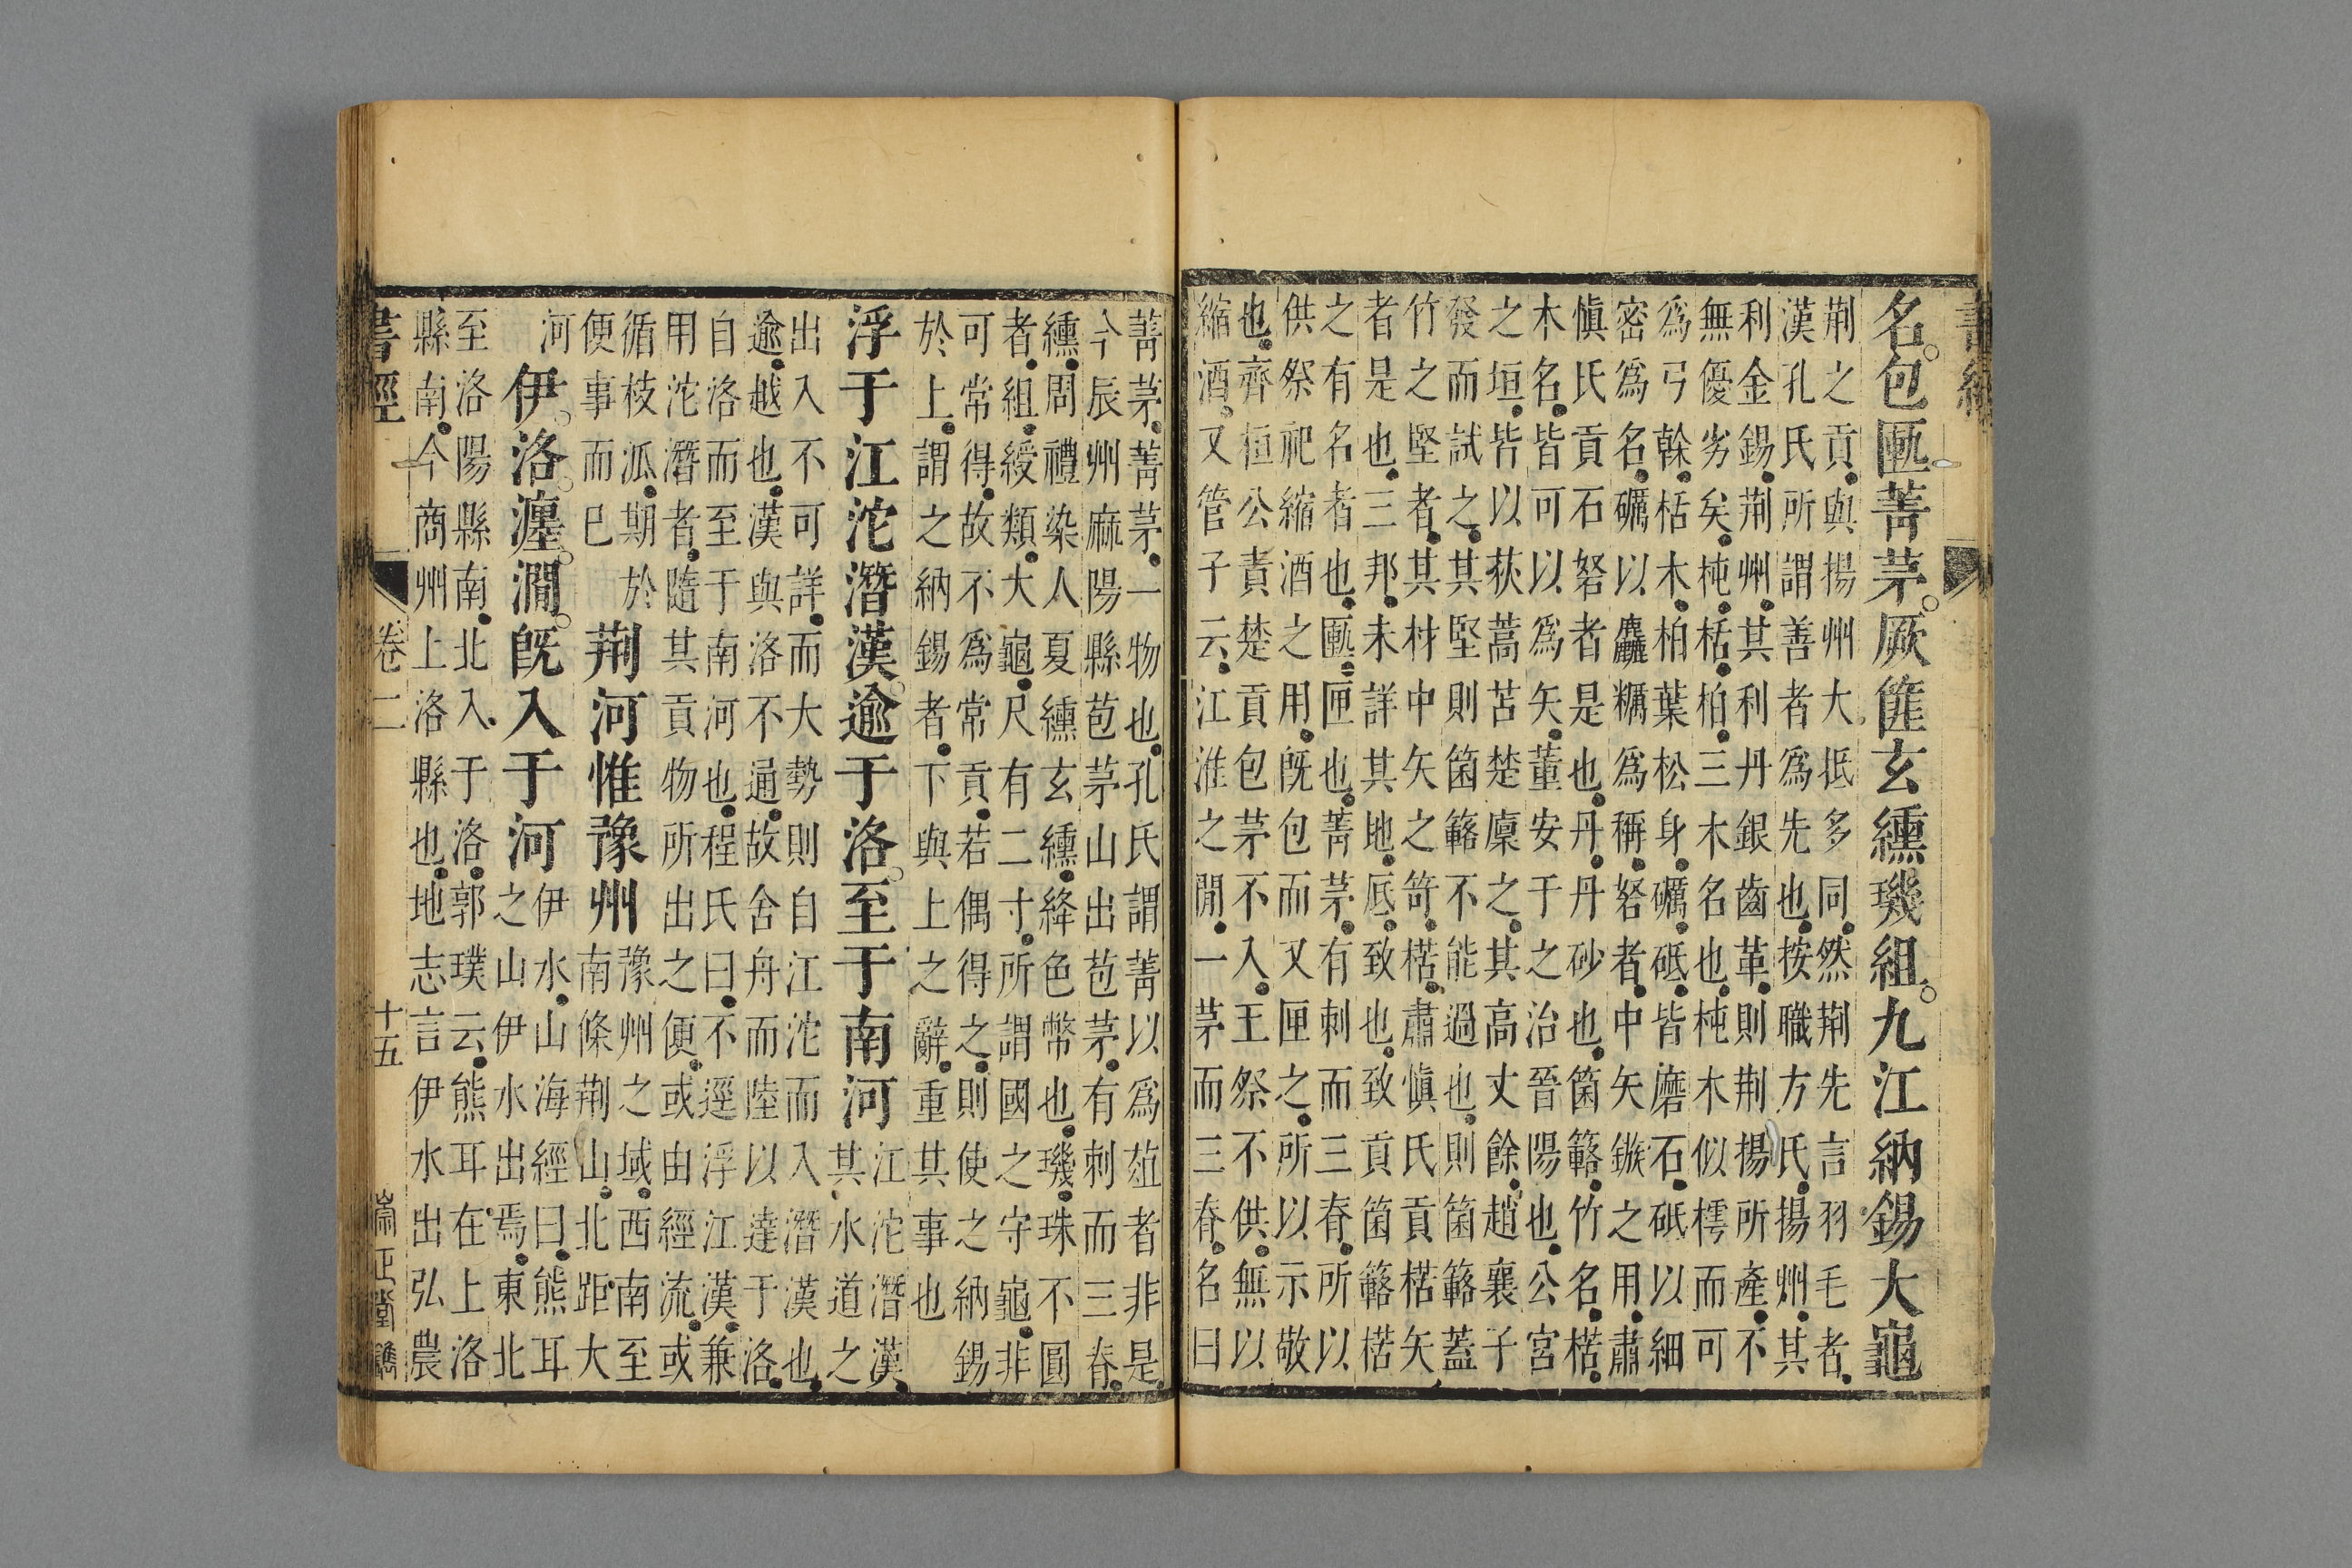 名包匭菁茅厥篚玄纁璣組九江納錫大龜
荆之貢與揚州大抵多同然荆先言羽毛者
漢孔氏所謂善者爲先也按職方氏揚州其
利金錫荆州其利丹銀齒革則荆揚所產不
無優劣矣杶栝柏三木名也杶木似樗而可
爲弓榦栝木柏葉松身礪砥皆磨石砥以細
密爲名礪以麤糲爲稱砮者中矢鏃之用肅
愼氏貢石砮者是也丹丹砂也箘簵竹名楛
木名皆可以爲矢董安于之治晉陽也公宮
之垣皆以荻蒿苫楚廩之其高丈餘趙襄子
發而試之其堅則箘簵不能過也則箘簵蓋
竹之堅者其材中矢之笴楛肅愼氏貢楛矢
者是也三邦未詳其地厎致也致貢箘簵楛
之有名者也匭匣也菁茅有刺而三脊所以
供祭祀縮酒之用既包而又匣之所以示敬
也齊桓公責楚貢包茅不入王祭不供無以
縮酒又管子云江淮之閒一茅而三脊名曰
菁茅菁茅一物也孔氏謂菁以爲菹者非是
今辰州麻陽縣苞茅山出苞茅有刺而三脊
纁周禮染人夏纁玄纁絳色幣也璣珠不圓
者組綬類大龜尺有二寸所謂國之守龜非
可常得故不爲常貢若偶得之則使之納錫
於上謂之納錫者下與上之辭重其事也
浮于江沱潛漢逾于洛至于南河
江沱潛漢
其水道之
出入不可詳而大勢則自江沱而入潛漢也
逾越也漢與洛不通故舍舟而陸以達于洛
自洛而至于南河也程氏曰不逕浮江漢兼
用沱潛者隨其貢物所出之便或由經流或
循枝泒期於
便事而已
荆河惟豫州
豫州之域西南至
南條荆山北距大
河
伊洛瀍澗既入于河
伊水山海經曰熊耳
之山伊水出焉東北
至洛陽縣南北入于洛郭璞云熊耳在上洛
縣南今商州上洛縣也地志言伊水出弘農
書經
卷二
十五
崇正堂鐫